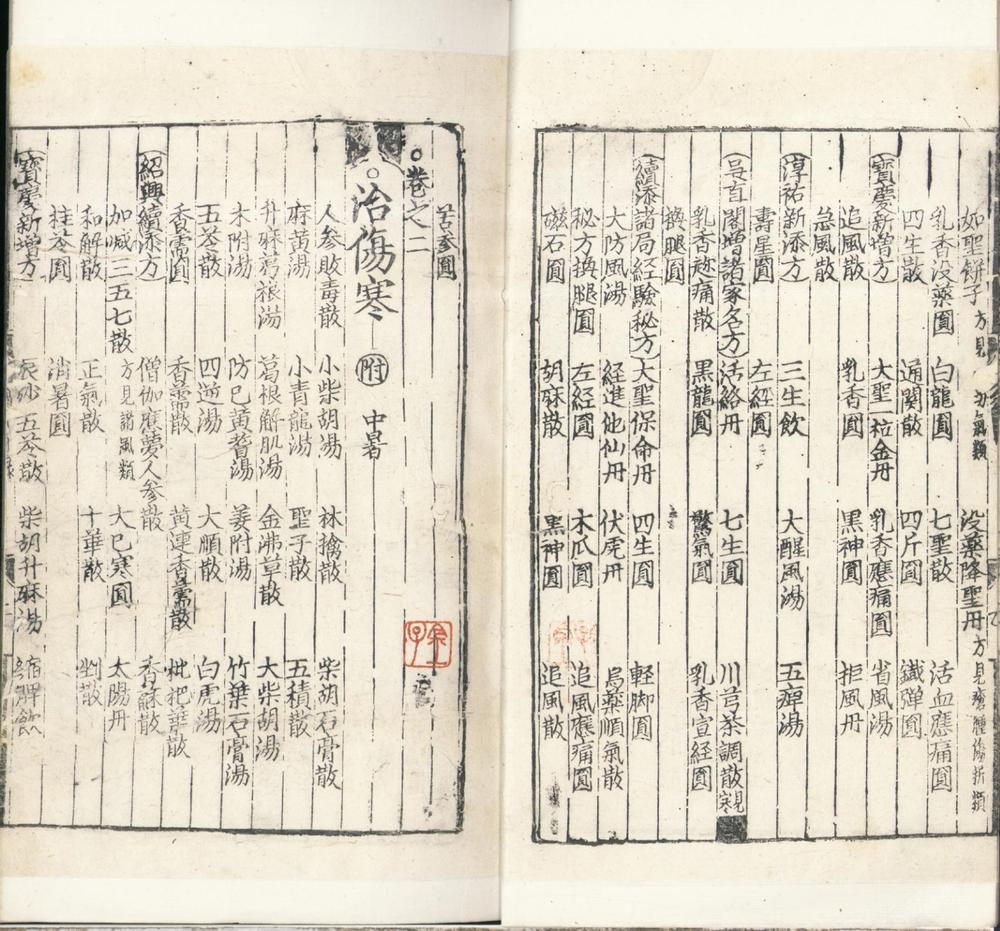 如聖餅子 方見 氣類 没藥降聖丹 方見瘡腫傷折類
乳香没藥圓 白龍圓 七聖散 活血應痛圓
四生散 通關散 四斤圓 鐵彈圓
寶慶新增方 大聖一粒金丹 乳香應痛圓 省風湯
追風散 乳香圓 黑神圓 拒風丹
急風散
淳祐新添方 三生飲 大醒風湯 五痺湯
壽星圓 左經圓
吳直閣增諸家名方 活絡丹 七生圓 川芎茶調散
乳香趂痛散 黑龍圓 驚氣圓 乳香宣經圓
換腿圓
續添諸局經驗秘方 大聖保命丹 四生圓 軽脚圓
大防風湯 經進他仙丹 伏虎丹 烏藥順氣散
秘方換腿圓 左經圓 木瓜圓 追風應痛圓
磁石圓 胡麻散 黑神圓 追風散
苦參圓
卷之二
治傷寒 附 中暑
人参敗毒散 小柴胡湯 林擒散 柴胡石膏散
麻黃湯 小青龍湯 聖子散 五積散
升麻葛根湯 葛根解肌湯 金沸草散 大柴胡湯
术附湯 防已黃耆湯 姜附湯 竹葉石膏湯
五苓散 四逆湯 大順散 白虎湯
香薷圓 香薷散 黃連香薷散 枇杷葉散
紹興續添方 僧伽應夢人参散 香蘇散
加減三五七散 方見諸風類 大已寒圓 太陽丹
和解散 正氣散 十華散 散
桂苓圓 消暑圓
寶慶新增方 辰砂五苓散 柴胡升麻湯 縮脾飲